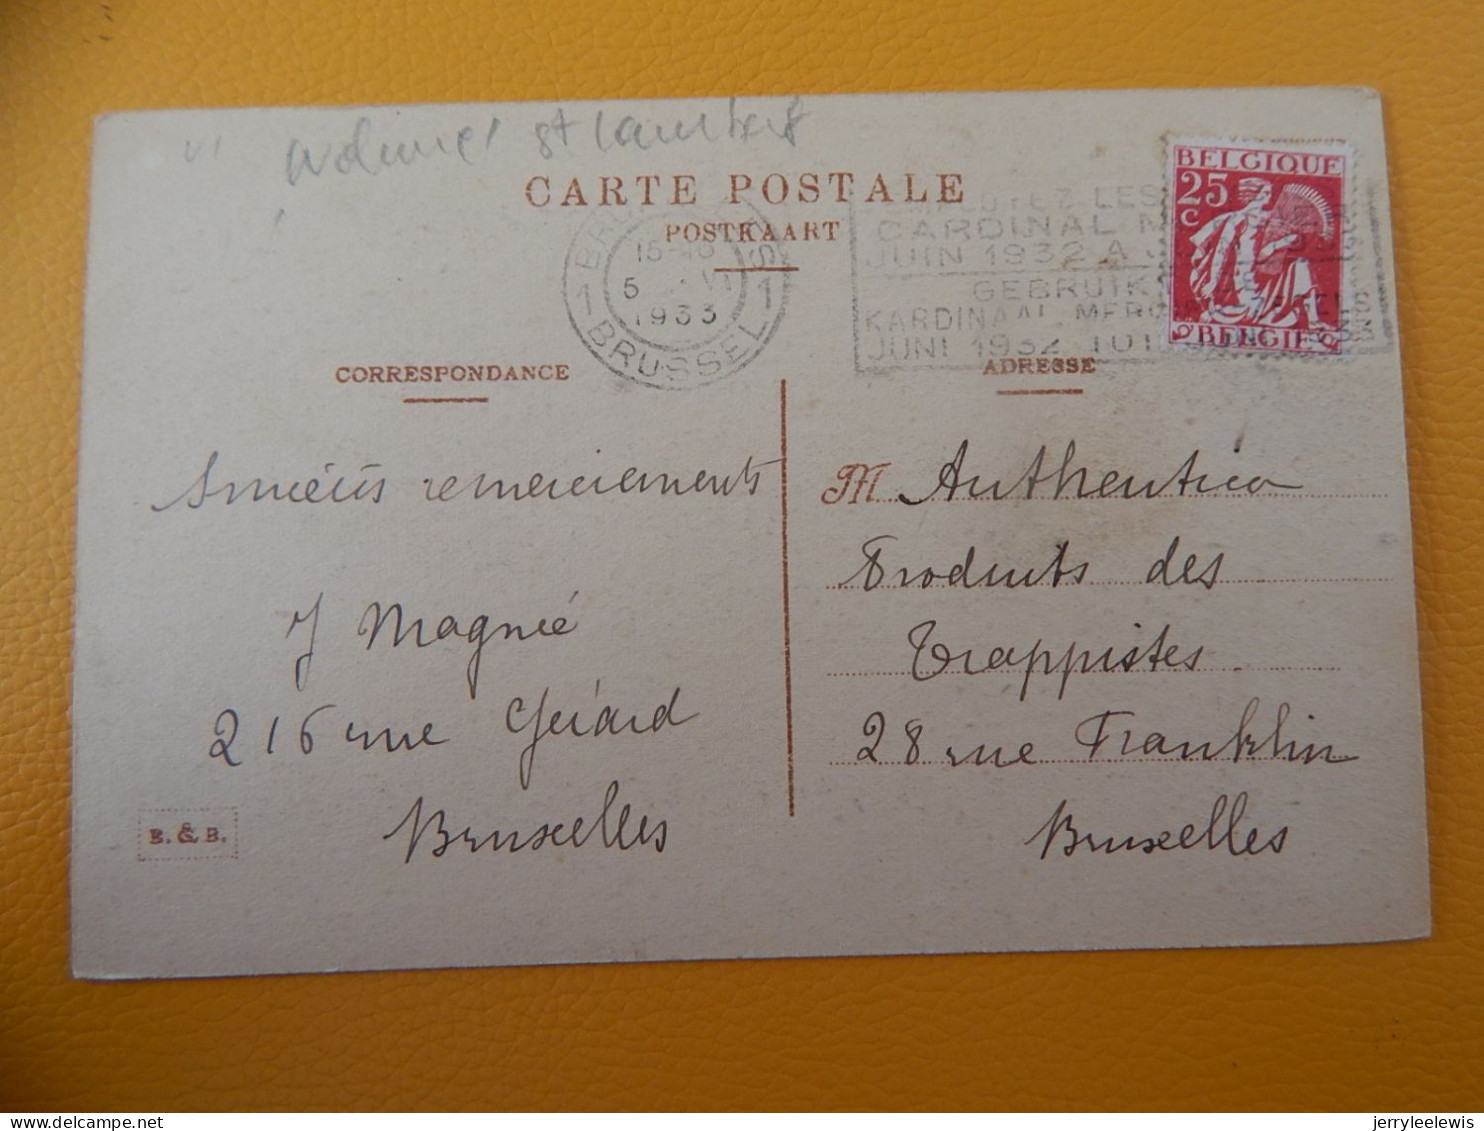 st Lambert
CARTE POSTALE
POSTKAART
15-16
5 VI
1933
1 BRUSSEL 1
LES
CARDINAL M
JUIN 1932 A J
GEBRUIK
KARDINAAL MERC
JUNI 1932 TOT
BELGIQUE
25
C
BELGIË
CORRESPONDANCE
ADRESSE
Sincères remerciements
J Magnée
216 rue Gérard
Bruxelles
M Authentica
Produits des
Trappistes
28 rue Franklin
Bruxelles
B. & B.
jerryleelewis